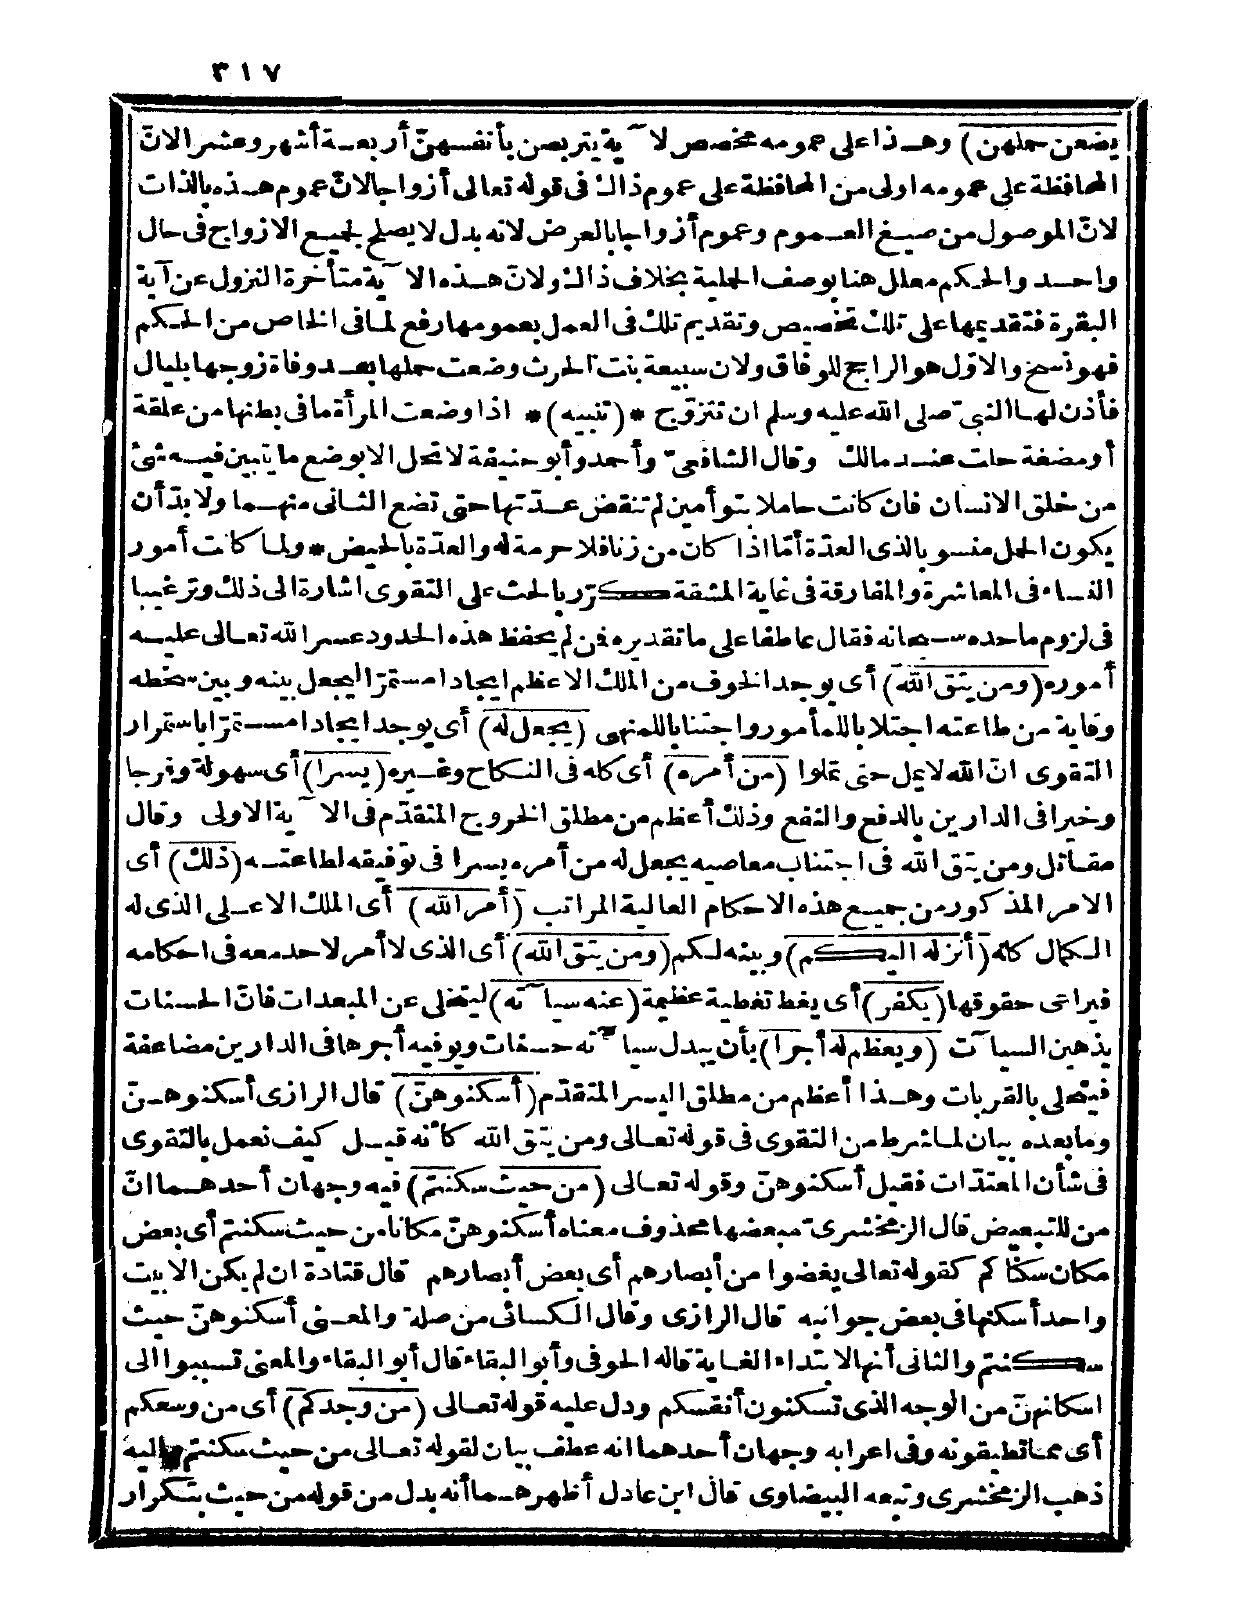 ٣١٧
يضعن حملهن) وهـذا على عمومه مخصص لآية يتربصن بأنفسهنّ أربعـة أشهر وعشر الانّ
المحافظة على عمومه اولى من المحافظة على عموم ذاك فى قوله تعالى أزواجا لانّ عموم هـذه بالذات
لانّ الموصول من صيـغ العـموم وعموم أزواجا بالعرض لانه بدل لا يصلح لجميـع الازواج فى حال
واحـد والحكم معلل هنا بوصف الحملية بخلاف ذاك ولانّ هـذه الآية متأخرة النزول عن آية
البقرة فتقديمها على تلك تخصيص وتقديم تلك فى العمل بعمومها رفع لما فى الخاص من الحكم
فهو نسخ والاوّل هو الراجح للوفاق ولان سبيعة بنت الحرث وضعت حملها بعـد وفاة زوجها بليال
فأذن لهـا النبىّ صلى الله عليه وسلم ان تتزوّج *(تنبيه)* اذا وضعت المرأة ما فى بطنها من علقة
أو مضغة حلت عنـد مالك وقال الشافعىّ وأحمد وأبو حنيفة لا تحل الا بوضع ما يتبين فيـه شئ
من خلق الانسان فان كانت حاملا بتوأمين لم تنقض عـدّتها حتى تضع الثانى منهـما ولا بدّ أن
يكون الحمل منسوبا لذى العدّة أمّا اذا كان من زنا فلا حرمة له والعدّة بالحيض * ولما كانت أمور
النساء فى المعاشرة والمفارقة فى غاية المشقة كرّر بالحث على التقوى اشارة الى ذلك وترغيبا
فى لزوم ما حده سبحانه فقال عاطفا على ما تقديره فن لم يحفظ هذه الحدود عسر الله تعالى عليـه
أموره (ومن يتق الله) أى يوجد الخوف من الملك الاعظم ايجادا مستمرّا ليجعل بينه وبين سخطه
وقاية من طاعته اجتلابا للمأمور واجتنابا للمنهى (يجعل له) أى يوجد ايجادا مستمرّا باستمرار
التقوى انّ الله لا يمل حتى تملوا (من أمره) أى كله فى النكاح وغـيره (يسرا) أى سهولة وفرجا
وخيرا فى الدارين بالدفع والنفع وذلك أعظم من مطلق الخروج المتقدّم فى الآية الاولى وقال
مقاتل ومن يتق الله فى اجتناب معاصيه يجعل له من أمره يسرا فى توفيقه لطاعتـه (ذلك) أى
الامر المذكور من جميـع هذه الاحكام العالية المراتب (أمر الله) أى الملك الاعـلى الذى له
الكمال كله (أنزله اليكم) وبينه لكم (ومن يتق الله) أى الذى لا أمر لاحد معه فى احكامه
فيراعى حقوقها (يكفر) أى يغط تغطية عظيمة (عنه سيآته) ليتخلى عن المبعدات فانّ الحسنات
يذهبن السيآت (ويعظم له أجرا) بأن يبدل سيآته حسنات ويوفيه أجرها فى الدارين مضاعفة
فيتحلى بالقربات وهـذا أعظم من مطلق اليسر المتقدّم (أسكنوهنّ) قال الرازى أسكنوهـنّ
وما بعده بيان لما شرط من التقوى فى قوله تعالى ومن يتق الله كأنه قيـل كيف نعمل بالتقوى
فى شأن المعتدّات فقيل أسكنوهنّ وقوله تعـالى (من حيث سكنتم) فيه وجهان أحدهـما انّ
من للتبعيض قال الزمخشرىّ مبعضها محذوف معناه أسكنوهنّ مكانا من حيث سكنتم أى بعض
مكان سكناكم كقوله تعالى يغضوا من أبصارهم أى بعض أبصارهم قال قتادة ان لم يكن الا بيت
واحد أسكنها فى بعض جوانبه قال الرازى وقال الكسائى من صلة والمعـنى أسكنوهنّ حيث
سكنتم والثانى أنها لابتداء الغـاية قاله الحوفى وأبو البقاء قال أبو البقاء والمعنى تسببوا الى
اسكانهنّ من الوجه الذى تسكنون أنفسكم ودل عليه قوله تعالى (من وجدكم) أى من وسعكم
أى مما تطيقونه وفى اعرابه وجهان أحدهما انه عطف بيان لقوله تعالى من حيث سكنتم واليه
ذهب الزمخشرى وتبعه البيضاوى قال ابن عادل أظهرهـما أنه بدل من قوله من حيث بتكرار